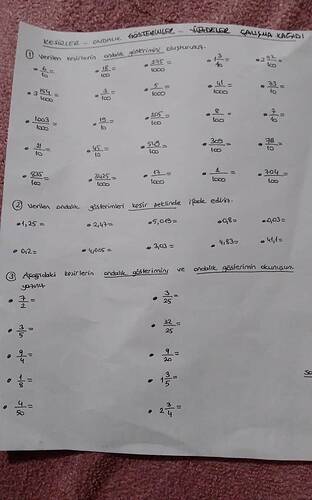 KESİRLER - ONDALIK GÖSTERİMLER - ÇALIŞMA KAĞADI
① Verilen kesirlerin ondalık gösterimini oluşturunuz.
• 6/10 = • 18/100 = • 375/1000 = • 3/10 = • 2 92/100 =
• 3 154/1000 = • 3/100 = • 5/1000 = • 41/1000 = • 33/10 =
• 1003/1000 = • 19/10 = • 205/100 = • 8/100 = • 7/10 =
• 21/10 = • 45/10 = • 549/100 = • 309/100 = • 78/10 =
• 535/100 = • 3425/1000 = • 17/100 = • 1/1000 = • 704/100 =
② Verilen ondalık gösterimleri kesir şeklinde ifade ediniz.
• 1,25 = • 2,47 = • 5,019 = • 0,8 = • 0,03 =
• 0,2 = • 4,005 = • 3,03 = • 4,83 = • 41,1 =
③ Aşağıdaki kesirlerin ondalık gösterimini ve ondalık gösterimin okunuşunu
yazınız.
• 7/2 = • 3/25 =
• 3/5 = • 32/25 =
• 9/4 = • 9/20 =
• 1/8 = • 1 3/5 =
• 4/50 = • 2 3/4 =